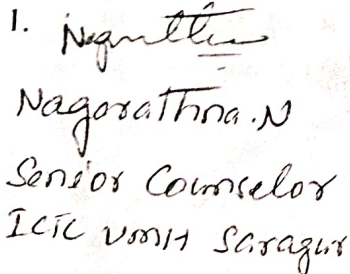 1.
Nagarathna.N
Senior Counselor
ICTC VMH Saragur